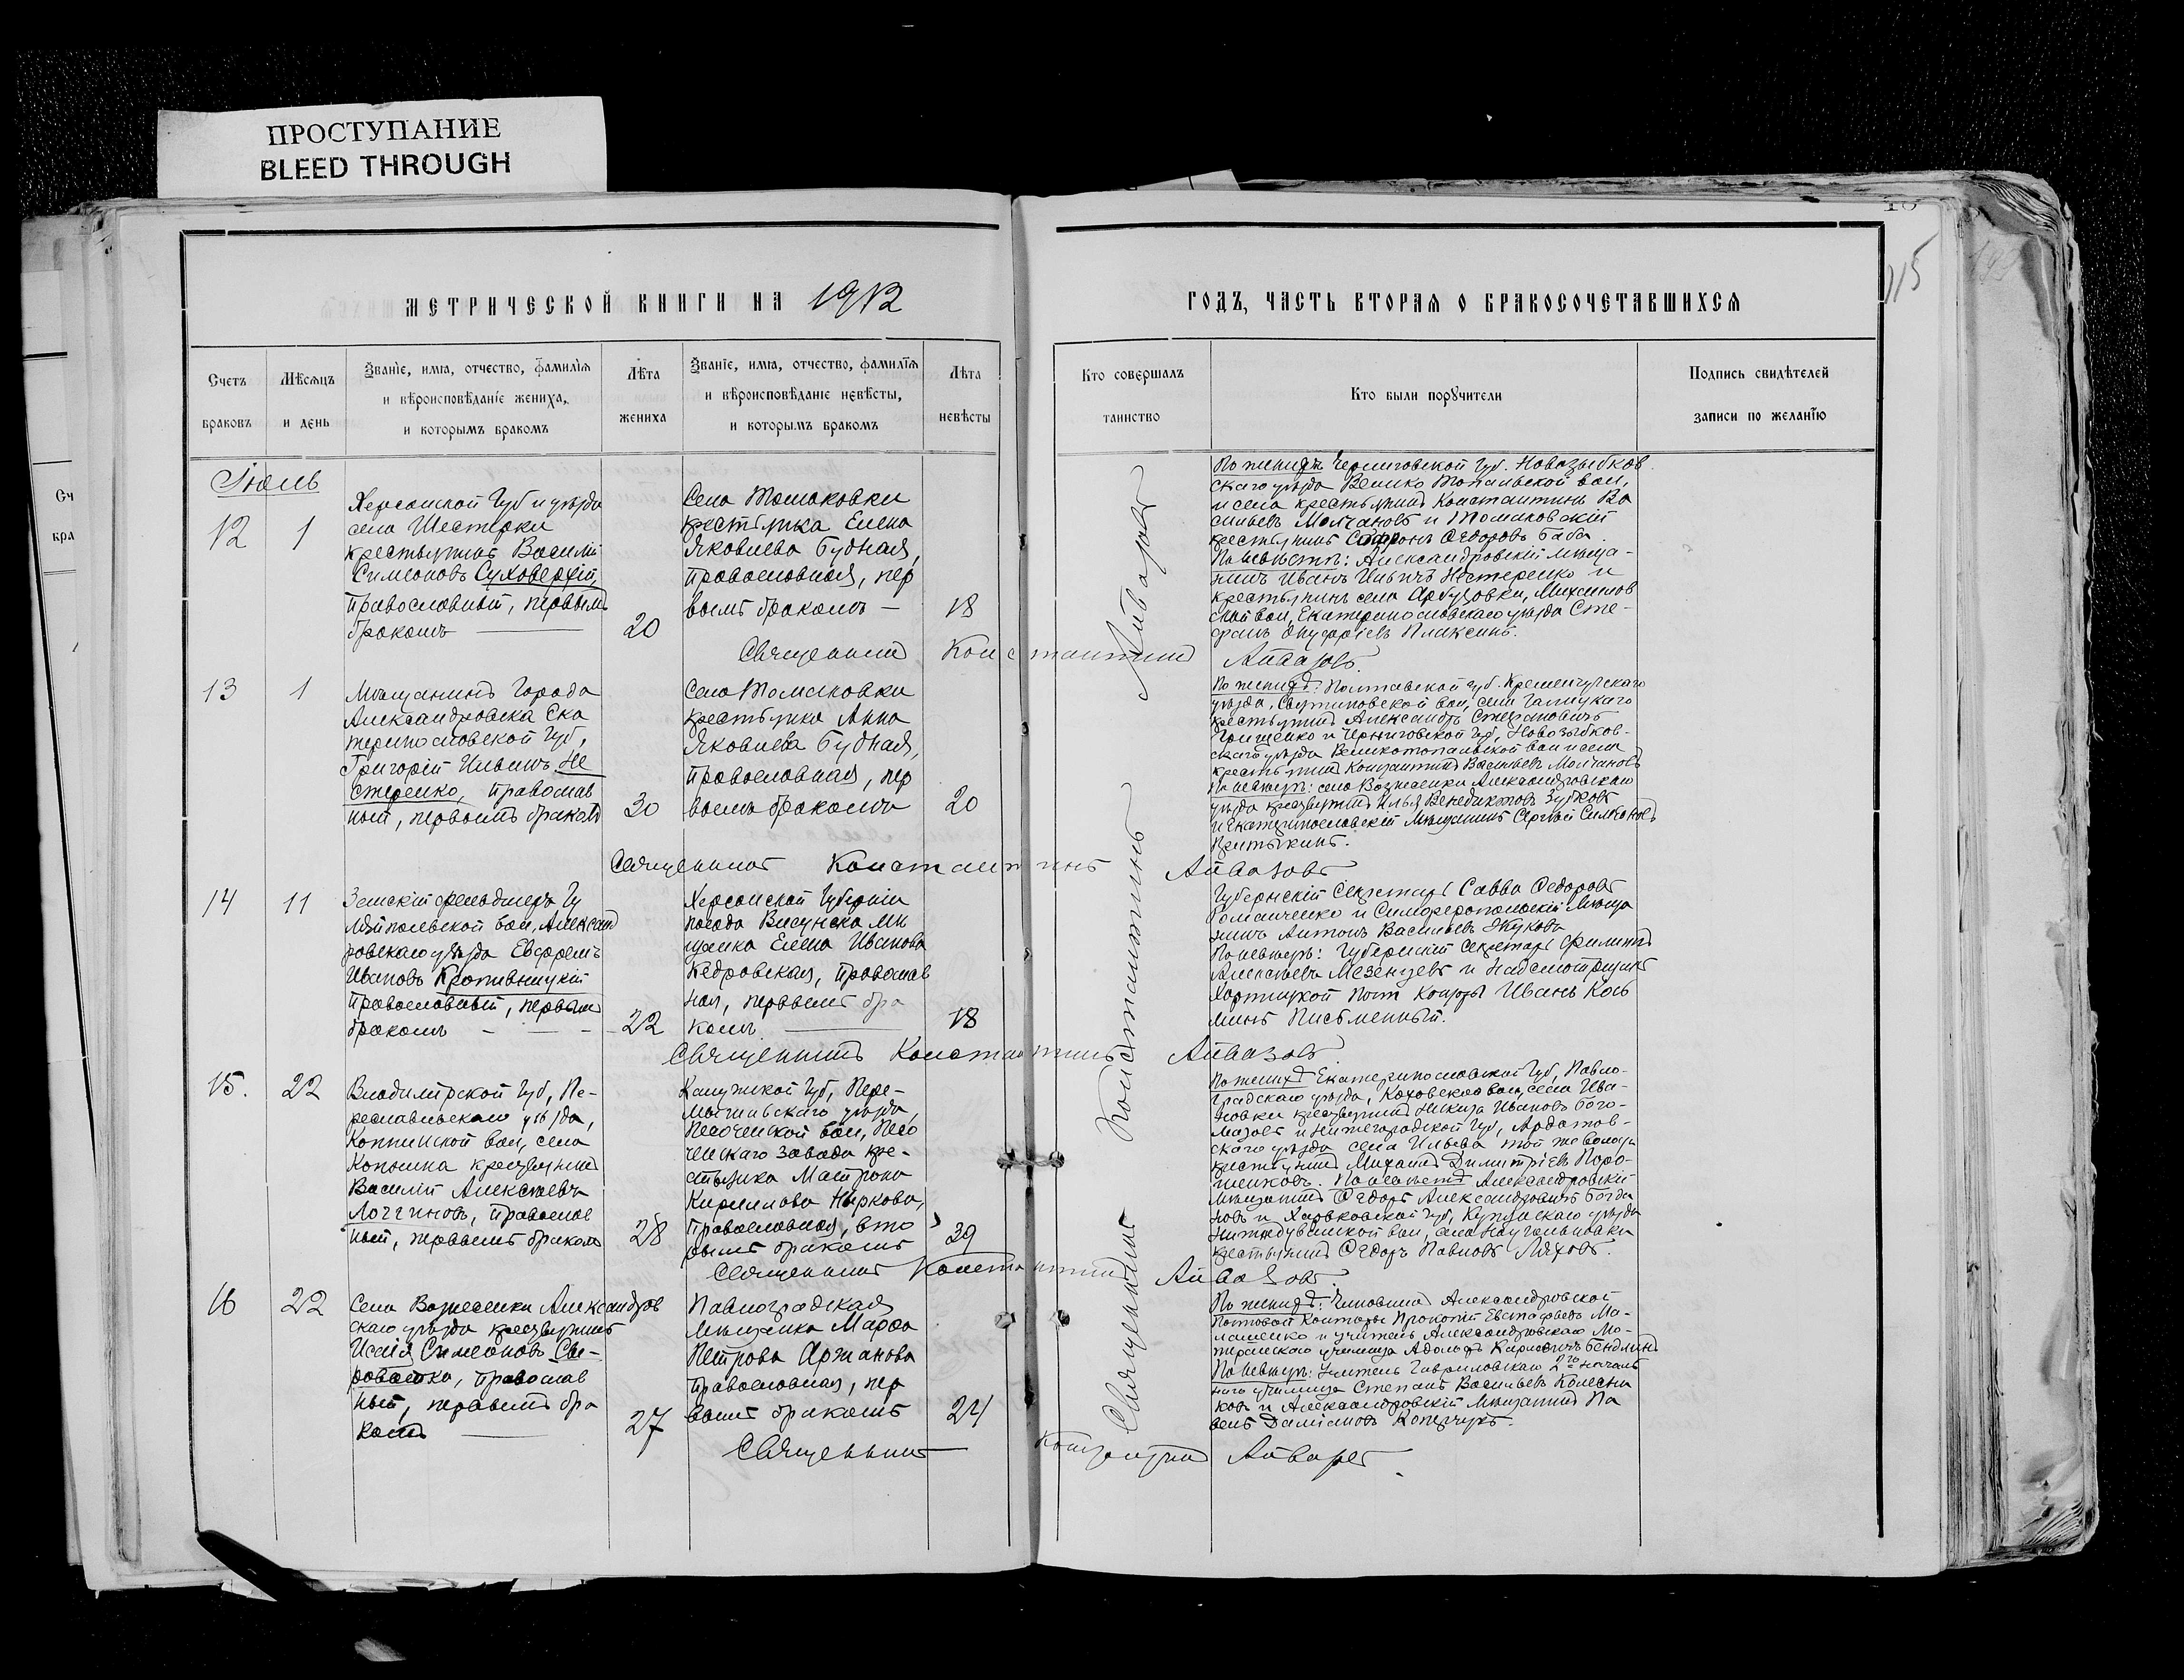 ПРОСТУПАНИЕ
BLEED THROUGH
115
МЕТРИЧЕСКОЙ КНИГИ НА 1912
ГОДЪ, ЧАСТЬ ВТОРАЯ О БРАКОСОЧЕТАВШИХСЯ
Счетъ
браковъ
Мѣсяцъ
и день
Званіе, имя, отчество, фамилія
и вѣроисповѣданіе жениха,
и которымъ бракомъ
Лѣта
жениха
Званіе, имя, отчество, фамилія
и вѣроисповѣданіе невѣсты,
и которымъ бракомъ
Лѣта
невѣсты
Кто совершалъ
таинство
Кто были поручители
Подпись свидѣтелей
записи по желанію
Іюль
12
1
Херсонской Губ и уѣзда
села Шестерни
крестьянинъ Василій
Симеоновъ Суховерхій,
православный, первымъ
бракомъ
20
Села Томаковки
крестьянка Елена
Яковлева Будная,
православная, пер
вымъ бракомъ —
18
По женихѣ Черниговской Губ. Новозыбков
скаго уѣзда Велико Топальской вол,
и села крестьянинъ Константинъ Ва
сильевъ Молчановъ и Томаковскій
крестьянинъ Софронъ Ѳедоровъ Баба.
По невѣстѣ: Александровскій мѣща-
нинъ Иванъ Ильичъ Нестеренко и
крестьянинъ села Арбузовки, Михайлов
ской вол, Екатеринославскаго уѣзда Сте-
фанъ Онуфріевъ Плаксинъ.
Священникъ Константинъ Айвазовъ.
13
1
Мѣщанинъ Города
Александровска Ека
теринославской Губ,
Григорій Ильичъ Не
стеренко, православ
ный, первымъ бракомъ
30
Села Томаковки
крестьянка Анна
Яковлева Будная,
православная, пер
вымъ бракомъ
20
По женихѣ: Полтавской губ. Кременчугскаго
уѣзда, вол, села Галицкаго
крестьянинъ Александръ Стефановичъ
Грищенко и Черниговской Губ, Новозыбков-
скаго уѣзда Великотопальской вол и села
крестьянинъ Константинъ Васильевъ Молчановъ
По невѣстѣ: села Вознесенки Александровскаго
уѣзда крестьянинъ Илья Венедиктовъ Зубковъ
и Екатеринославскій Мѣщанинъ Сергій Симеоновъ
Священникъ Константинъ Айвазовъ
14
11
Земскій фельдшеръ Гу
ляйпольской вол, Александ
ровскаго уѣзда Евфремъ
Ивановъ Кропивницкій
православный, первымъ
бракомъ - - -
22
Херсонской Губерніи
посада Висунска мѣ
щанка Елена Иванова
Кедровская, православ
ная, первымъ бра
комъ
18
Губернскій Секретарь Савва Ѳедоровъ
Романченко и Симферопольскій Мѣща
нинъ Антонъ Васильевъ Жуковъ
По невѣстѣ: Губернскій Секретарь Филиппъ
Алексѣевъ Мезенцевъ и Надсмотрщикъ
Хортицкой Почт Конторы Иванъ Козь
минъ Письменный.
Священникъ Константинъ Айвазовъ
15.
22
Владимірской Губ, Пе-
реславльскаго уѣзда,
Копнинской вол, села
Копнина крестьянинъ
Василій Алексѣевъ
Логгиновъ, православ
ный, первымъ бракомъ
28
Калужской Губ, Пере-
мышльскаго уѣзда,
Песоченской вол, Песо
ченскаго завода кре-
стьянка Матрона
Кириллова Ныркова,
православная, вто
рымъ бракомъ
39
По женихѣ Екатеринославской Губ, Павло-
градскаго уѣзда, Коховской вол, села Ива-
новки крестьянинъ Никита Ивановъ Бого-
мазовъ и Нижегородской Губ, Ардатов-
скаго уѣзда села Ильева той же волости
крестьянинъ Михаилъ Димитріевъ Поро-
шенковъ. По невѣстѣ Александровскій
Мѣщанинъ Ѳедоръ Александровичъ Богда
новъ и Харьковской Губ, Купянскаго уѣзда
Нижнедуванской вол,
крестьянинъ Ѳедоръ Павловъ Ляховъ.
Священникъ Константинъ Айвазовъ.
16
22
Села Вознесенки Александров
скаго уѣзда крестьянинъ
Исаія Симеоновъ Сы-
роватка, православ
ный, первымъ бра
комъ
27
Павлоградская
мѣщанка Марѳа
Петрова Аржанова
православная, пер
вымъ бракомъ
24
По женихѣ: Чиновникъ Александровской
Почтовой Конторы Прокопій Евстафіевъ Ма-
лашенко и учитель Александровскаго
училища Адольфъ Карловичъ Бендлинъ
По невѣстѣ: Учитель Гавриловскаго 2го началь
наго училища Степанъ Васильевъ Колесни
ковъ и Александровскій Мѣщанинъ Па
велъ Даміановъ Копачукъ.
Священникъ Константинъ Айвазовъ.
Священникъ Константинъ Айвазовъ